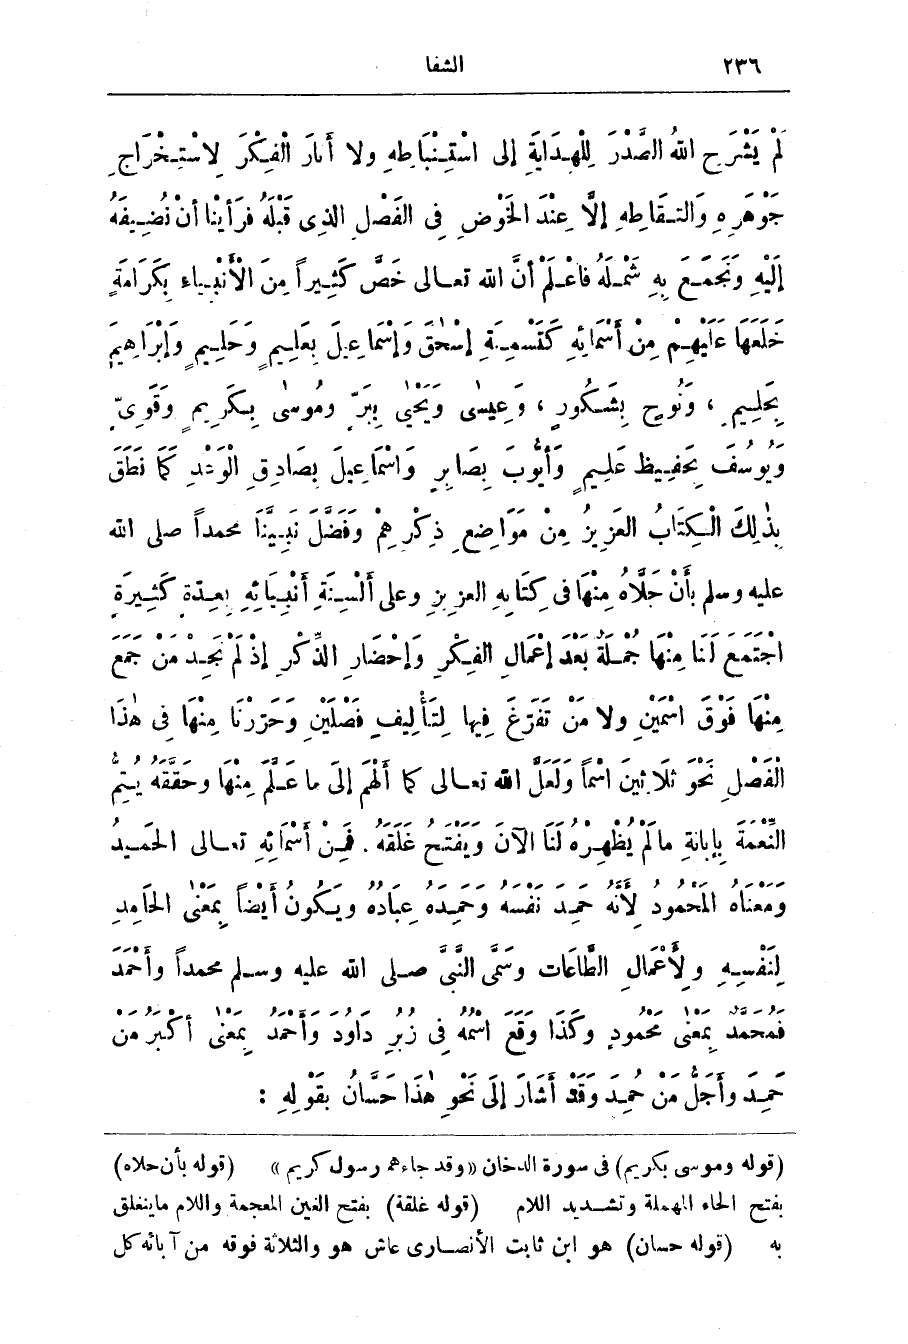 ٢٣٦ الشفا
لَمْ يَشْرَحِ اللهُ الصَّدْرَ لِلْهِدَايَةِ إلى اسْتِنْبَاطِهِ ولا أَنارَ الْفِكْرَ لاسْتِخْرَاجِ
جَوْهَرِهِ وَالْتِقَاطِهِ إلَّا عِنْدَ الخَوْضِ فِى الفَصْلِ الذِى قَبْلَهُ فَرَأَيْنا أنْ نُضِيفَهُ
إِلَيْهِ وَنَجْمَعَ بِهِ شَمْلَهُ فَاعْلَمْ أنَّ الله تعالى خَصَّ كَثِيراً مِنَ الْأَنْبِياءِ بِكَرَامَةٍ
خَلَعَهَا عَلَيْهِمْ مِنْ أَسْمَائِهِ كَتَسْمِيَةِ إسْحٰقَ وَإسْمَاعِيلَ بِعَلِيمٍ وَحَلِيمٍ وَإبْرَاهِيمَ
بِحَلِيمٍ ، وَنُوحٍ بِشَكُورٍ ، وَعِيسٰى وَيَحْيٰى بِبَرّ وَمُوسٰى بِكَرِيمٍ وَقَوِىّ
وَيُوسُفَ بِحَفِيظٍ عَلِيمٍ وَأَيُّوبَ بِصَابِرٍ وَاسْمَاعِيلَ بِصَادِقِ الْوَعْدِ كَمَا نَطَقَ
بِذٰلِكَ الْكِتَابُ العَزِيزُ مِنْ مَوَاضِعِ ذِكْرِهِمْ وَفَضَّلَ نَبِيَّنَا محمداً صلى الله
عليه وسلم بأَنْ حَلَّاهُ مِنْهَا فى كِتَابِهِ العزيزِ وعلى أَلْسِنَةِ أَنْبِيَائِهِ بِعِدّةٍ كَثِيرَةٍ
اجْتَمَعَ لَنَا مِنْهَا جُمْلَةٌ بَعْدَ إعْمَالِ الفِكْرِ وَإحْضَارِ الذِّكْرِ إذْ لَمْ نَجِدْ مَنْ جَمَعَ
مِنْهَا فَوْقَ اسْمَيْنِ ولا مَنْ تَفَرَّغَ فِيها لِتَأْلِيفِ فَصْلَيْنِ وَحَرَّرْنَا مِنْهَا فِى هٰذَا
الْفَصْلِ نَحْوَ ثلَاثِينَ اسْماً وَلَعَلَّ الله تعالى كما أَلْهَمَ إلَى ما عَلَّمَ مِنْهَا وحَقَّقَهُ يُتِمُّ
النِّعْمَةَ بِإِبانَةِ ما لَمْ يُظْهِرْهُ لَنَا الآنَ وَيَفْتَحُ غَلَقَهُ . فَمِنْ أَسْمَائِهِ تعالى الحَمِيدُ
وَمَعْنَاهُ الْمَحْمُودِ لِأَنَّهُ حَمِدَ نَفْسَهُ وَحَمِدَه عِبَادُهُ وَيَكُونُ أَيْضاً بِمَعْنٰى الحَامِدِ
لِنَفْسِهِ وِلِأَعْمَالِ الطَّاعَات وَسَمَّى النَّبِىَّ صلى الله عليه وسلم محمداً وأَحْمَدَ
فَمُحَمَّدٌ بِمَعْنٰى مَحْمُودٍ وَكَذَا وَقَعَ اسْمُهُ فِى زُبُرِ دَاوُدَ وَأَحْمَدُ بِمَعْنٰى أَكْبَرُ مَنْ
حَمِدَ وأَجَلُّ مَنْ حُمِدَ وَقَدْ أَشَارَ إلَى نَحْوِ هٰذَا حَسَّانُ بقَوْلِهِ :
(قوله وموسى بكريم) فى سورة الدخان «وقد جاءهم رسول كريم» (قوله بأن حلاه)
بفتح الحاء المهملة وتشديد اللام (قوله غلقة) بفتح الغين المعجمة واللام ما ينغلق
به (قوله حسان) هو ابن ثابت الأنصارى عاش هو والثلاثة فوقه من آبائه كل